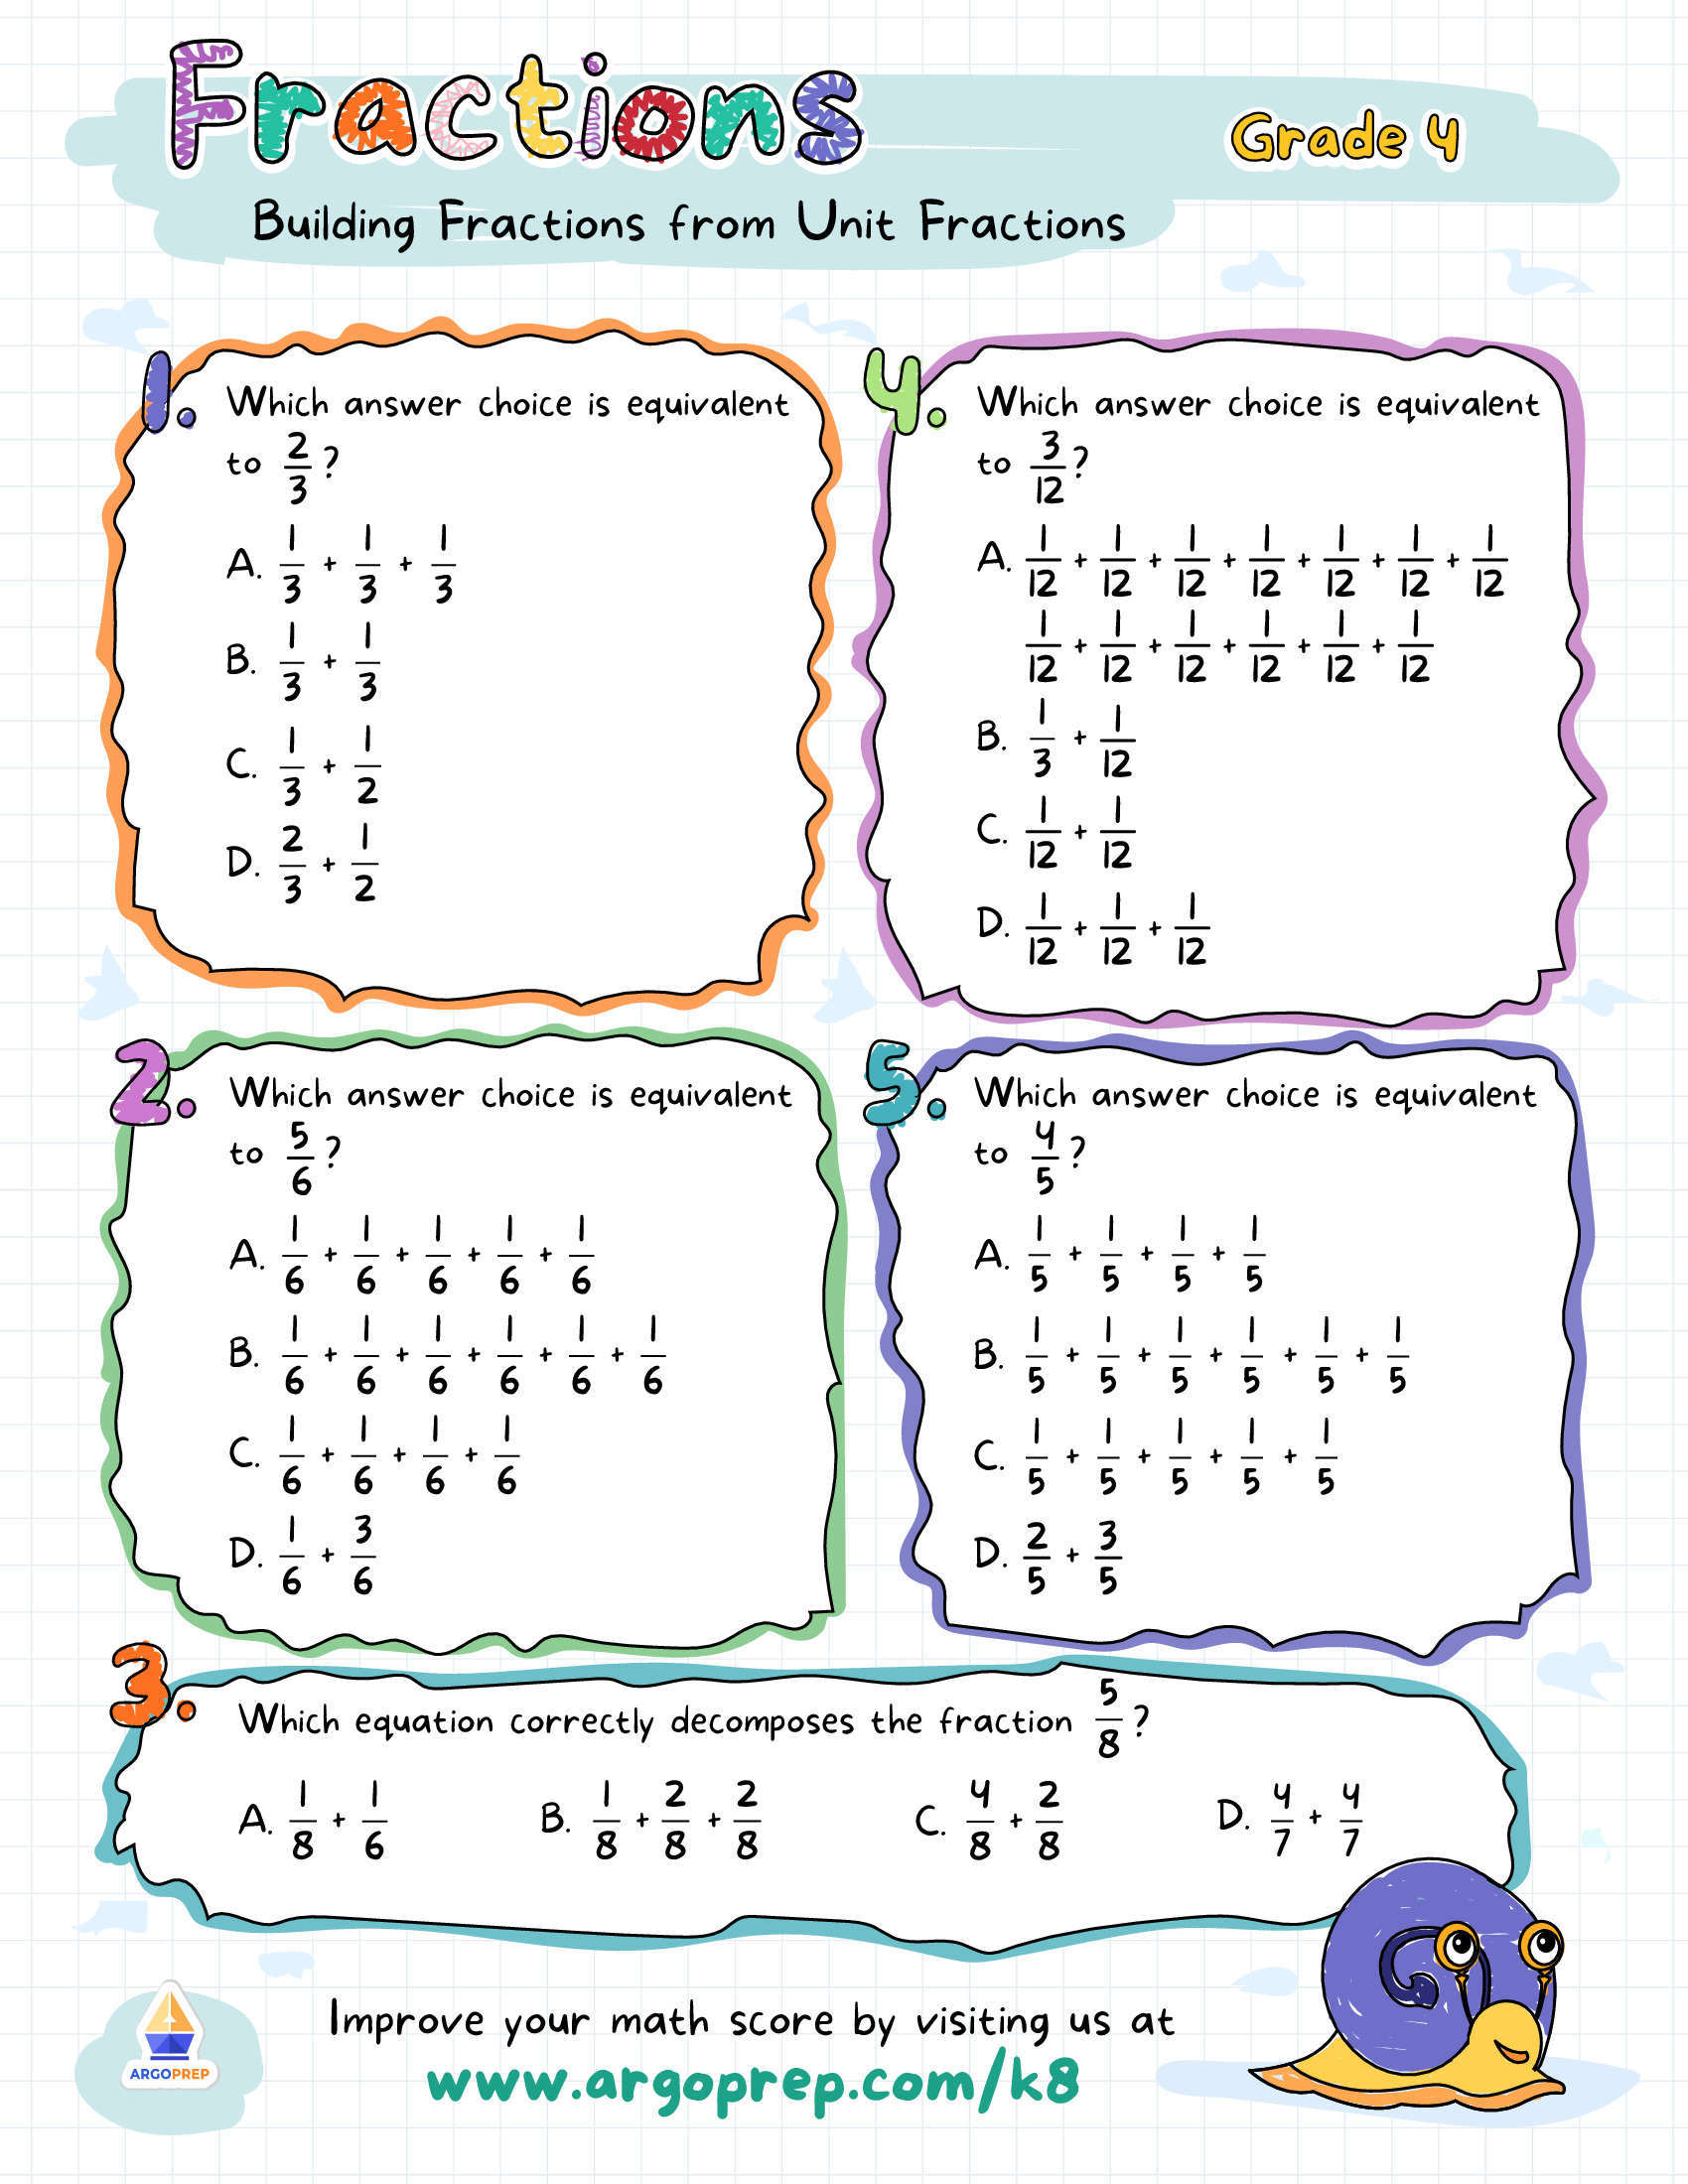 Fractions
Grade 4
Building Fractions from Unit Fractions
1. Which answer choice is equivalent
to 2/3?
A. 1/3 + 1/3 + 1/3
B. 1/3 + 1/3
C. 1/3 + 1/2
D. 2/3 + 1/2
4. Which answer choice is equivalent
to 3/12?
A. 1/12 + 1/12 + 1/12 + 1/12 + 1/12 + 1/12 + 1/12
1/12 + 1/12 + 1/12 + 1/12 + 1/12 + 1/12
B. 1/3 + 1/12
C. 1/12 + 1/12
D. 1/12 + 1/12 + 1/12
2. Which answer choice is equivalent
to 5/6?
A. 1/6 + 1/6 + 1/6 + 1/6 + 1/6
B. 1/6 + 1/6 + 1/6 + 1/6 + 1/6 + 1/6
C. 1/6 + 1/6 + 1/6 + 1/6
D. 1/6 + 3/6
5. Which answer choice is equivalent
to 4/5?
A. 1/5 + 1/5 + 1/5 + 1/5
B. 1/5 + 1/5 + 1/5 + 1/5 + 1/5 + 1/5
C. 1/5 + 1/5 + 1/5 + 1/5 + 1/5
D. 2/5 + 3/5
3. Which equation correctly decomposes the fraction 5/8?
A. 1/8 + 1/6
B. 1/8 + 2/8 + 2/8
C. 4/8 + 2/8
D. 4/7 + 4/7
Improve your math score by visiting us at
www.argoprep.com/k8
ARGOPREP